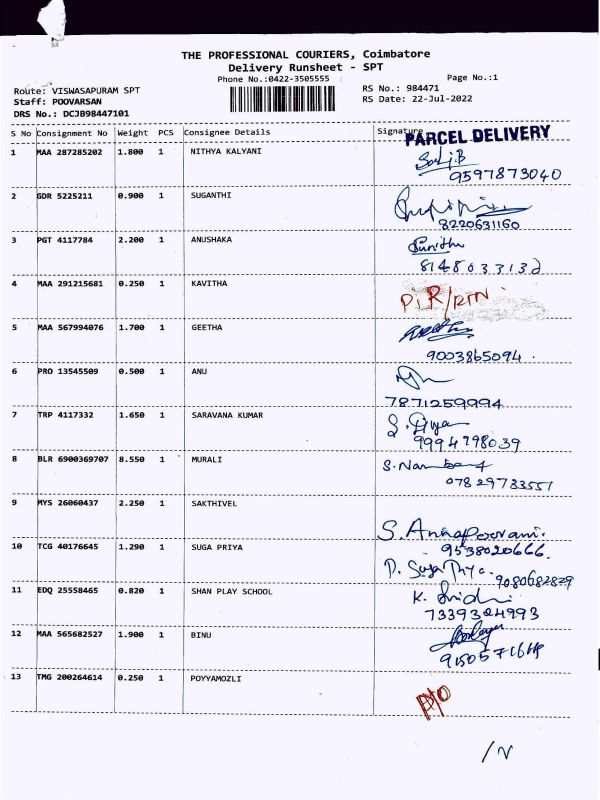 THE PROFESSIONAL COURIERS, Coimbatore
Delivery Runsheet - SPT
Phone No.:0422-3505555
Page No.:1
Route: VISWASAPURAM SPT
RS No.: 984471
Staff: POOVARSAN
RS Date: 22-Jul-2022
DRS No.: DCJB98447101
S No Consignment No Weight PCS Consignee Details Signature
PARCEL DELIVERY
1 MAA 287285202 1.800 1 NITHYA KALYANI
9597873040
2 GDR 5225211 0.900 1 SUGANTHI
8220631160
3 PGT 4117784 2.200 1 ANUSHAKA Sunitha
8148033132
4 MAA 291215681 0.250 1 KAVITHA
5 MAA 567994076 1.700 1 GEETHA Geetha
9003865094.
6 PRO 13545509 0.500 1 ANU
7871259994
7 TRP 4117332 1.650 1 SARAVANA KUMAR S. Diya
9994798039
8 BLR 6900369707 8.550 1 MURALI
07829733551
9 MYS 26060437 2.250 1 SAKTHIVEL
S. Annapoorani.
10 TCG 40176645 1.290 1 SUGA PRIYA 9538020666.
P. Suga Priya. 9080682829
11 EDQ 25558465 0.820 1 SHAN PLAY SCHOOL
7339324993
12 MAA 565682527 1.900 1 BINU
13 TMG 200264614 0.250 1 POYYAMOZLI